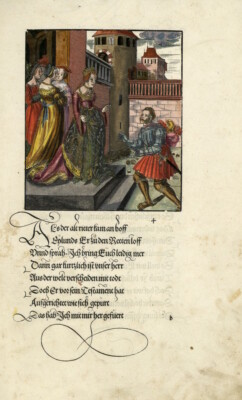 Als der alt ritter kam an hoff
Eylunds Er zu den Retten loff
Vnnd sprach Ich bring Euch leidig mer
Dann gar kurtzlich ist vnser herr
Aus der welt verschieden mit todt
Doch Er vor sein Testament hat
Aufgerichtet wie sich gepurt
Das hab Ich mit mir her gefuert